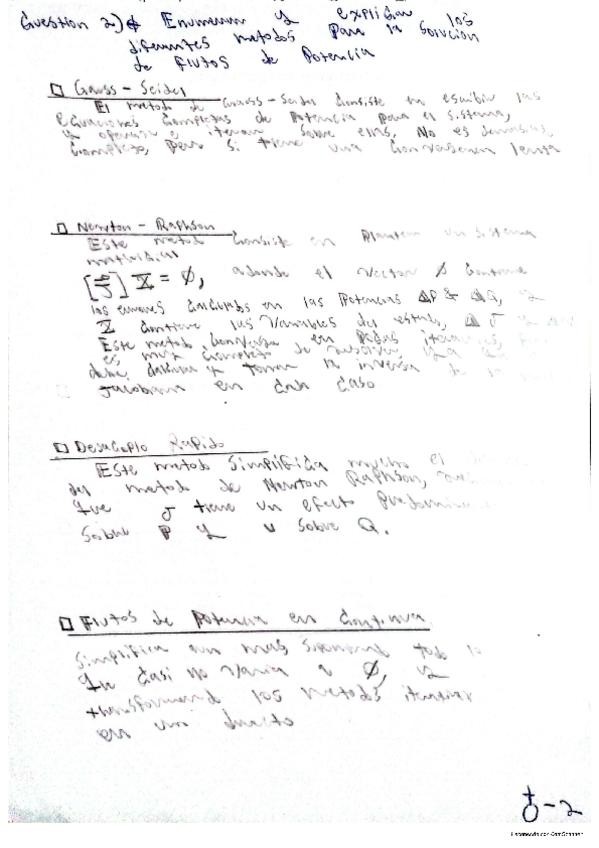 Cuestion 2) Enumerar y explicar los
diferentes metodos para la solucion
de Flujos de Potencia
Gauss - Seidel
El metodo de Gauss - Seidel consiste en escribir las
ecuaciones completas de Potencia para el sistema,
y operar e iterar sobre ellas. No es demasiado
complejo, pero si tiene una convergencia lenta
Newton - Raphson
Este metodo consiste en Plantear un sistema
matricial
X = Ø, adonde el vector Ø contiene
los errores calculados en las Potencias ΔP & ΔQ, y
X contiene las variables del estado,
Este metodo converge en pocas iteraciones,
es muy complejo de resolver, ya
debe calcular y tomar la inversa de
Jacobiana en cada caso
Desacoplo Rapido
Este metodo simplifica mucho el
del metodo de Newton Raphson,
que tiene un efecto predomin
sobre P y v sobre Q.
Flujos de Potencia en Continua
Simplifica aun mas suponiendo todo
que casi no varia a Ø, y
transformando los metodos iterar
en un directo
-2
Escaneado con CamScanner